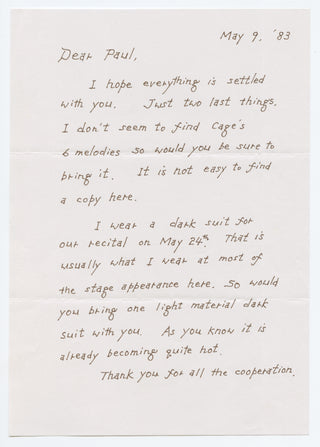 May 9, '83
Dear Paul,
I hope everything is settled
with you. Just two last things.
I don't seem to find Cage's
6 melodies so would you be sure to
bring it. It is not easy to find
a copy here.
I wear a dark suit for
our recital on May 24th. That is
usually what I wear at most of
the stage appearance here. So would
you bring one light material dark
suit with you. As you know it is
already becoming quite hot.
Thank you for all the cooperation.